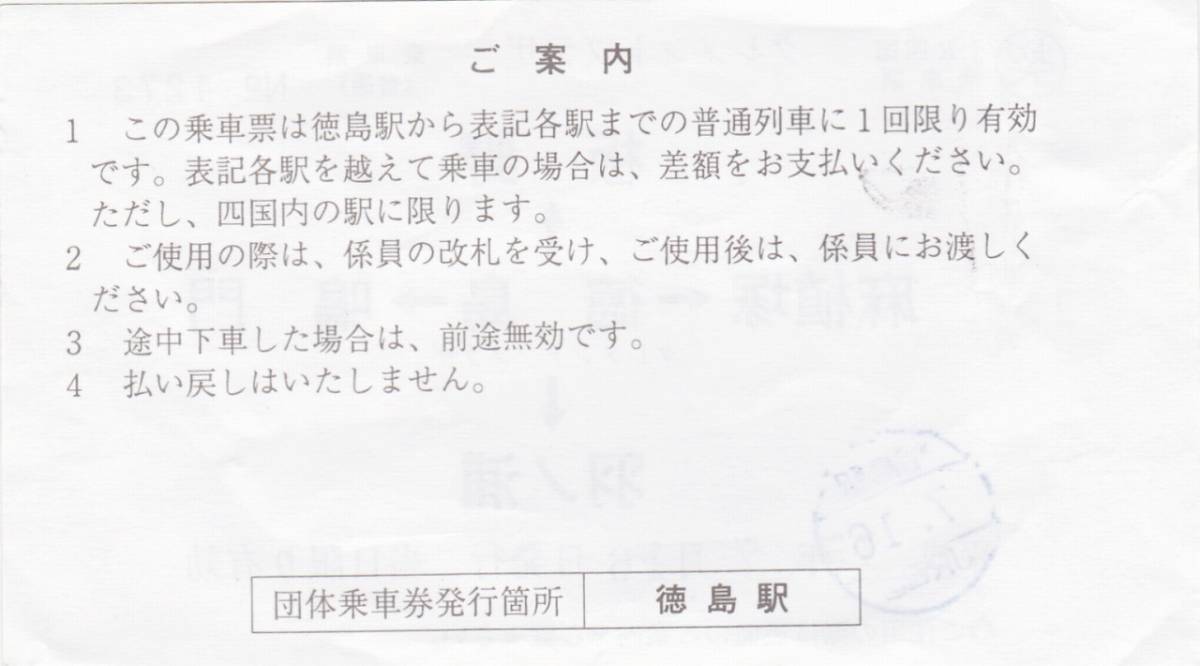 ご案内
1 この乗車票は徳島駅から表記各駅までの普通列車に1回限り有効
です。表記各駅を越えて乗車の場合は、差額をお支払いください。
ただし、四国内の駅に限ります。
2 ご使用の際は、係員の改札を受け、ご使用後は、係員にお渡しく
ださい。
3 途中下車した場合は、前途無効です。
4 払い戻しはいたしません。
麻植塚←徳島→鳴門
↓
羽ノ浦
7.16
団体乗車券発行箇所 徳島駅